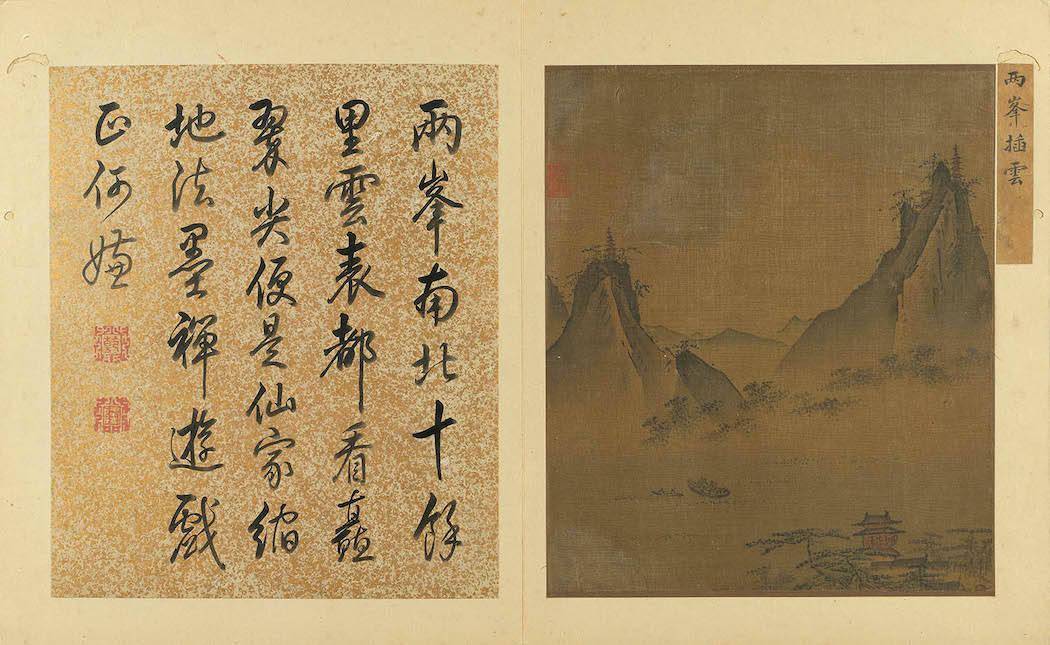 两峯插雲
兩峯南北十餘
里雲表都看矗
翠尖便是仙家縮
地法墨禪遊戲
正何嫌